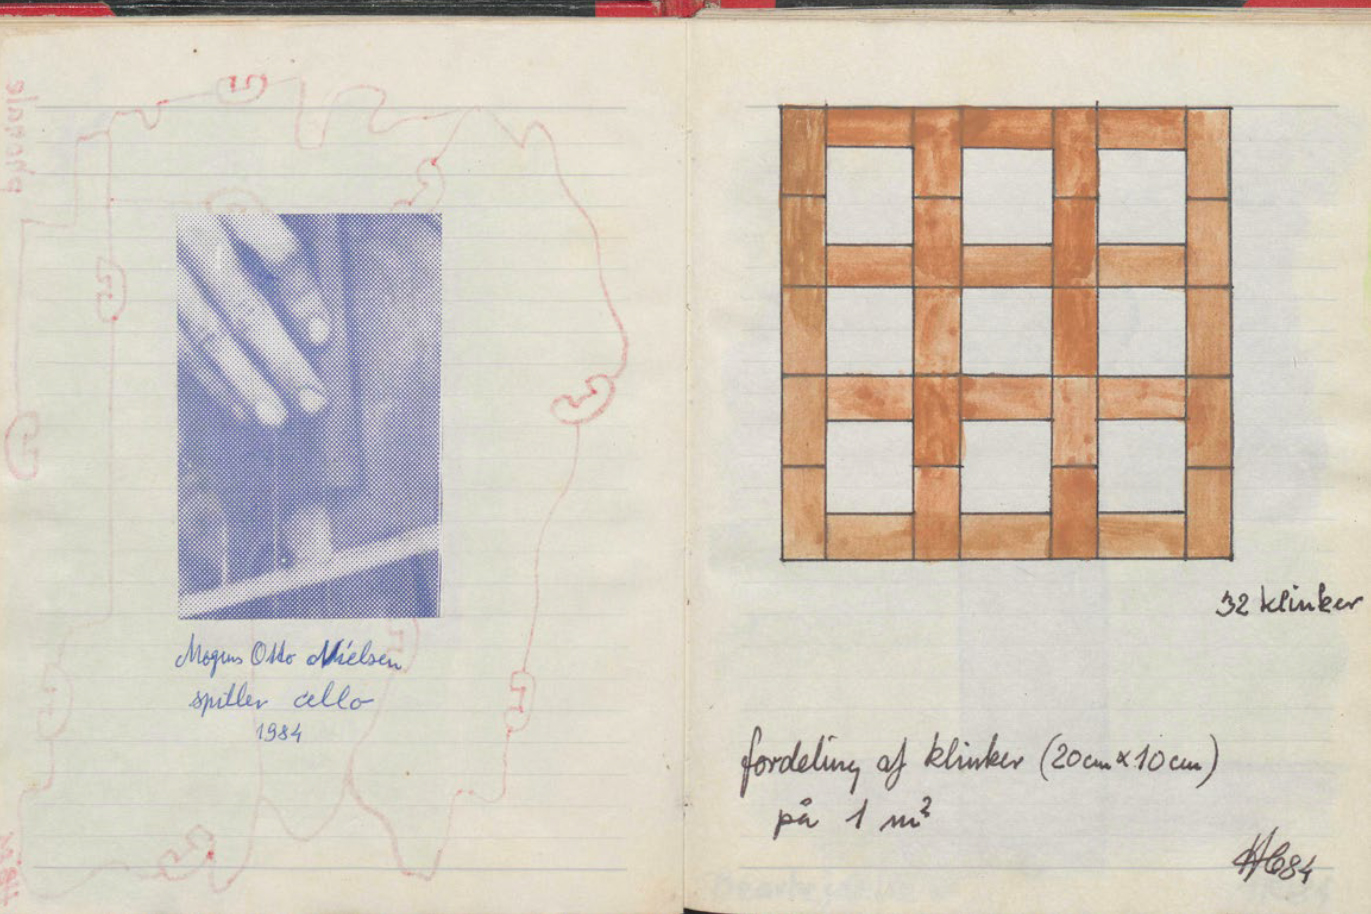 Mogens Otto Nielsen
spiller cello
1984
32 klinker
fordeling af klinker (20cm x 10cm)
på 1 m²
84